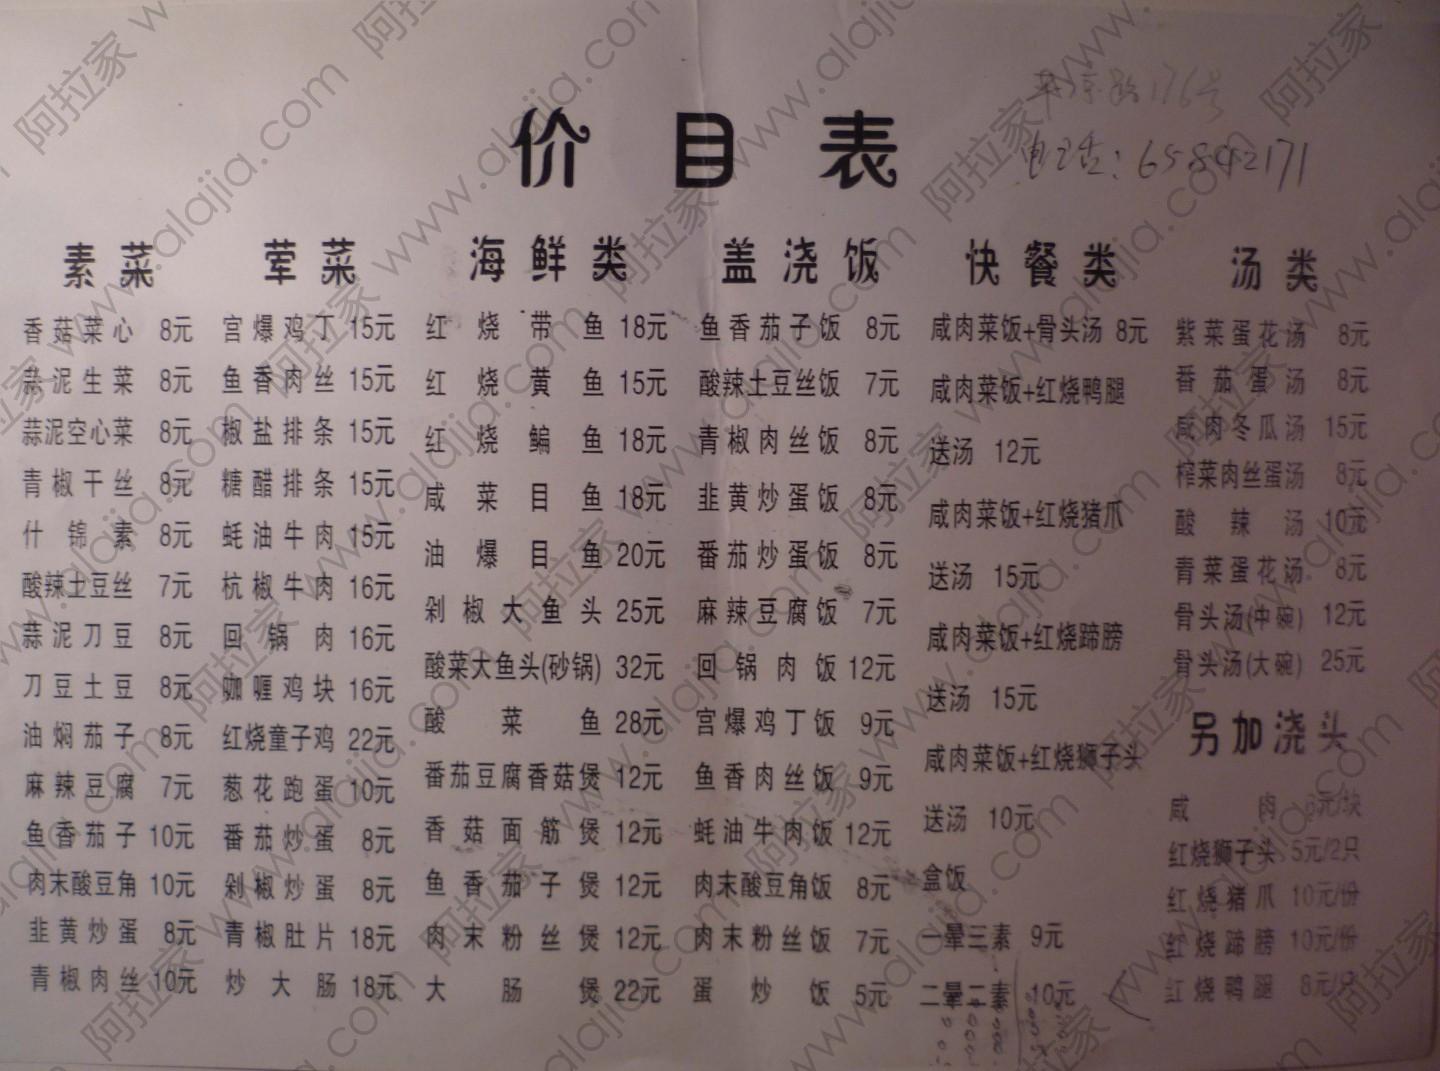 价目表
路176号
电话：65842171
素菜
香菇菜心 8元
蒜泥生菜 8元
蒜泥空心菜 8元
青椒干丝 8元
什锦素 8元
酸辣土豆丝 7元
蒜泥刀豆 8元
刀豆土豆 8元
油焖茄子 8元
麻辣豆腐 7元
鱼香茄子 10元
肉末酸豆角 10元
韭黄炒蛋 8元
青椒肉丝 10元
荤菜
宫爆鸡丁 15元
鱼香肉丝 15元
椒盐排条 15元
糖醋排条 15元
蚝油牛肉 15元
杭椒牛肉 16元
回锅肉 16元
咖喱鸡块 16元
红烧童子鸡 22元
葱花跑蛋 10元
番茄炒蛋 8元
剁椒炒蛋 8元
青椒肚片 18元
炒大肠 18元
海鲜类
红烧带鱼 18元
红烧黄鱼 15元
红烧鳊鱼 18元
咸菜目鱼 18元
油爆目鱼 20元
剁椒大鱼头 25元
酸菜大鱼头(砂锅) 32元
酸菜鱼 28元
番茄豆腐香菇煲 12元
香菇面筋煲 12元
鱼香茄子煲 12元
肉末粉丝煲 12元
大肠煲 22元
盖浇饭
鱼香茄子饭 8元
酸辣土豆丝饭 7元
青椒肉丝饭 8元
韭黄炒蛋饭 8元
番茄炒蛋饭 8元
麻辣豆腐饭 7元
回锅肉饭 12元
宫爆鸡丁饭 9元
鱼香肉丝饭 9元
蚝油牛肉饭 12元
肉末酸豆角饭 8元
肉末粉丝饭 7元
蛋炒饭 5元
快餐类
咸肉菜饭+骨头汤 8元
咸肉菜饭+红烧鸭腿
送汤 12元
咸肉菜饭+红烧猪爪
送汤 15元
咸肉菜饭+红烧蹄膀
送汤 15元
咸肉菜饭+红烧狮子头
送汤 10元
盒饭
一晕三素 9元
二晕二素 10元
汤类
紫菜蛋花汤 8元
番茄蛋汤 8元
咸肉冬瓜汤 15元
榨菜肉丝蛋汤 8元
酸辣汤 10元
青菜蛋花汤 8元
骨头汤(中碗) 12元
骨头汤(大碗) 25元
另加浇头
咸肉 元/块
红烧狮子头 5元/2只
红烧猪爪 10元/份
红烧蹄膀 10元/份
红烧鸭腿 8元/只
阿拉家 www.alajia.com